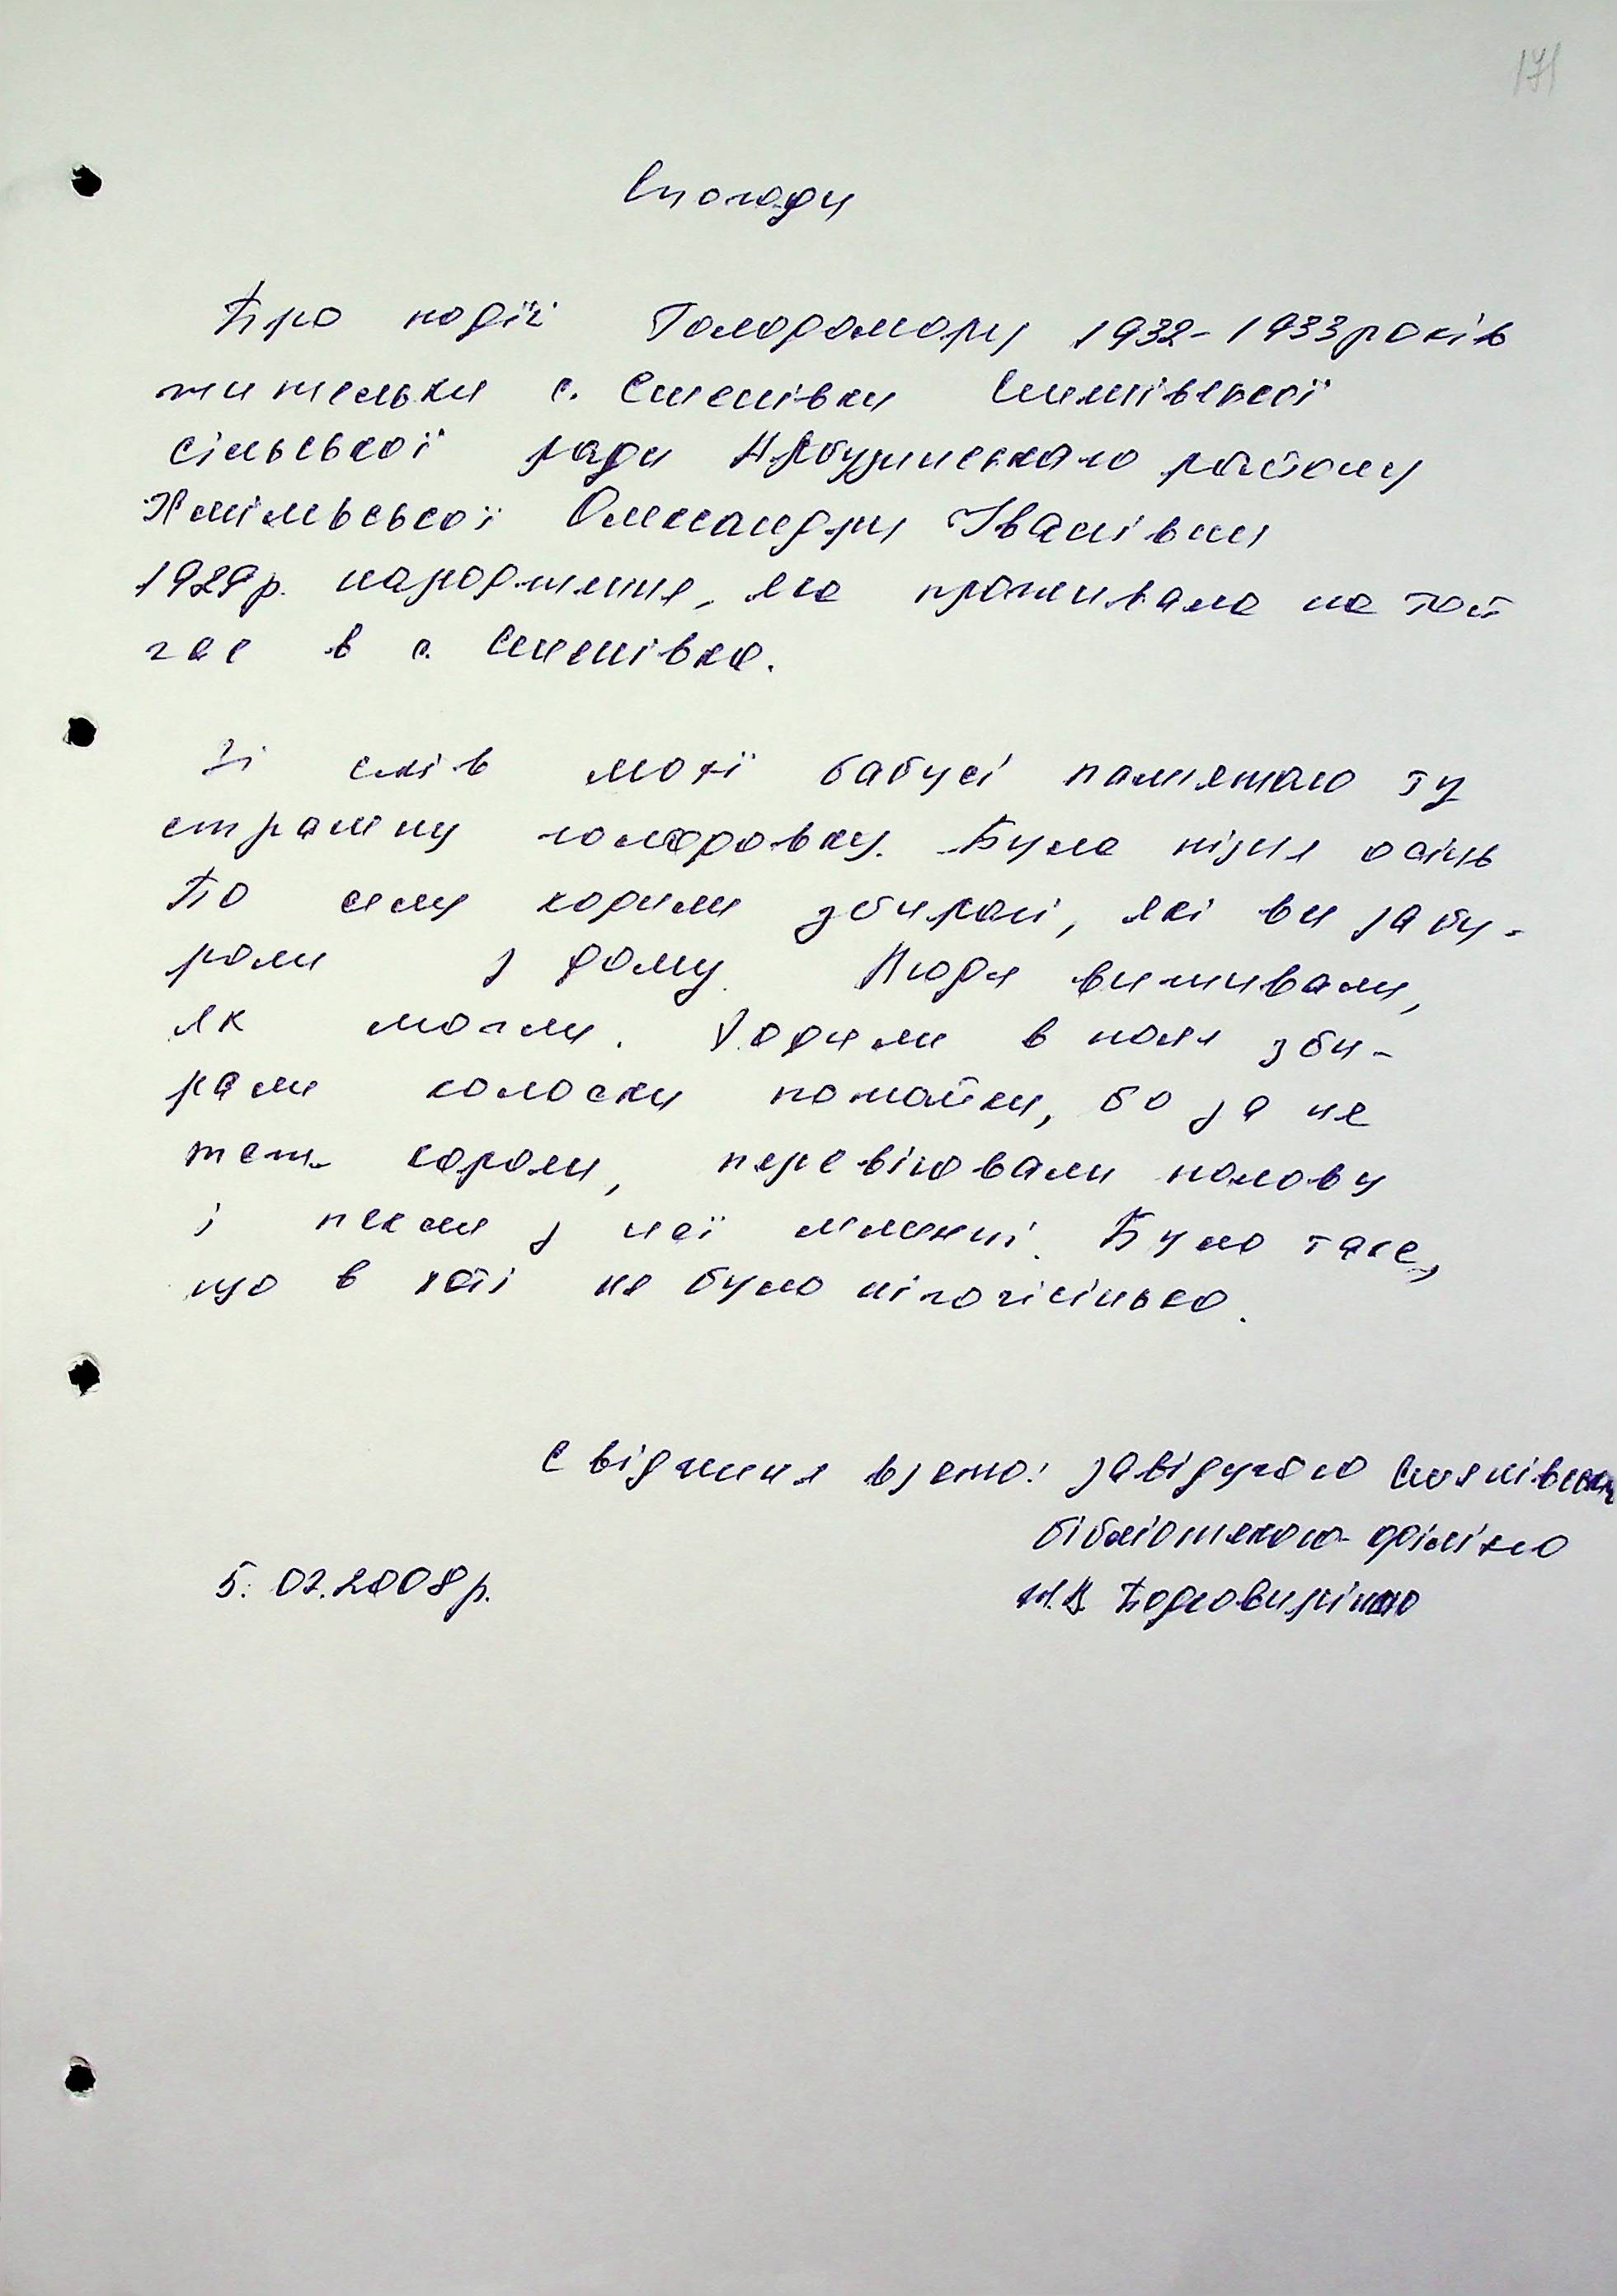 171
Спогади
Про події Голодомору 1932-1933 років
жительки с. Семенівки Семенівської
сільської ради Арбузинського району
Хмільської Олександри Іванівни
1929р. народження, яка проживала на той
час в с. Семенівка.
Зі слів моєї бабусі памятаю ту
страшну голодовку. Була пізня осінь
По селу ходили збирачі, які все заби-
рали з дому. Люди виживали,
як могли. Ходили в поля зби-
рали колоски потайки, бо за це
теж карали, перевіювали полову
і пекли з неї млинці. Було таке,
що в хаті не було нічогісінько.
Свідчення взято: завідуючою
бібліотекою-філією
5. 02.2008р.